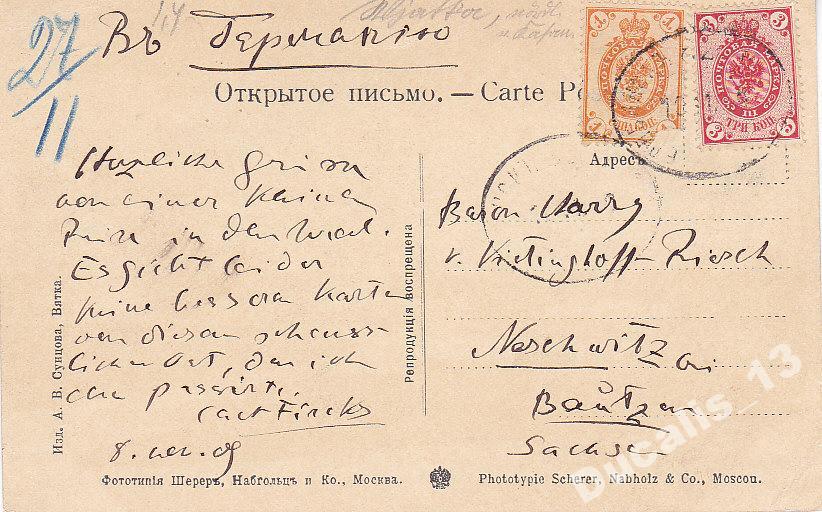 27/11
Въ Германію
Открытое письмо. — Carte Po
Адресъ
Herzliche Grüsse
von einer kleinen
Reise in den Wald.
Es giebt leider
keine besseren Karten
von diesem scheuss-
lichen Ort, den ich
eben passirt.
8. nov. 09
Baron Harry
v. Vietinghoff-Riesch
Neschwitz bei
Bautzen
Sachsen
Изд. А. В. Сунцова, Вятка.
Репродукція воспрещена
Фототипія Шереръ, Набгольцъ и Ко., Москва.
Phototypie Scherer, Nabholz & Co., Moscou.
ПОЧТОВАЯ МАРКА
1
ПОЧТОВАЯ МАРКА
3 ТРИ КОП. 3
Ducalis_13